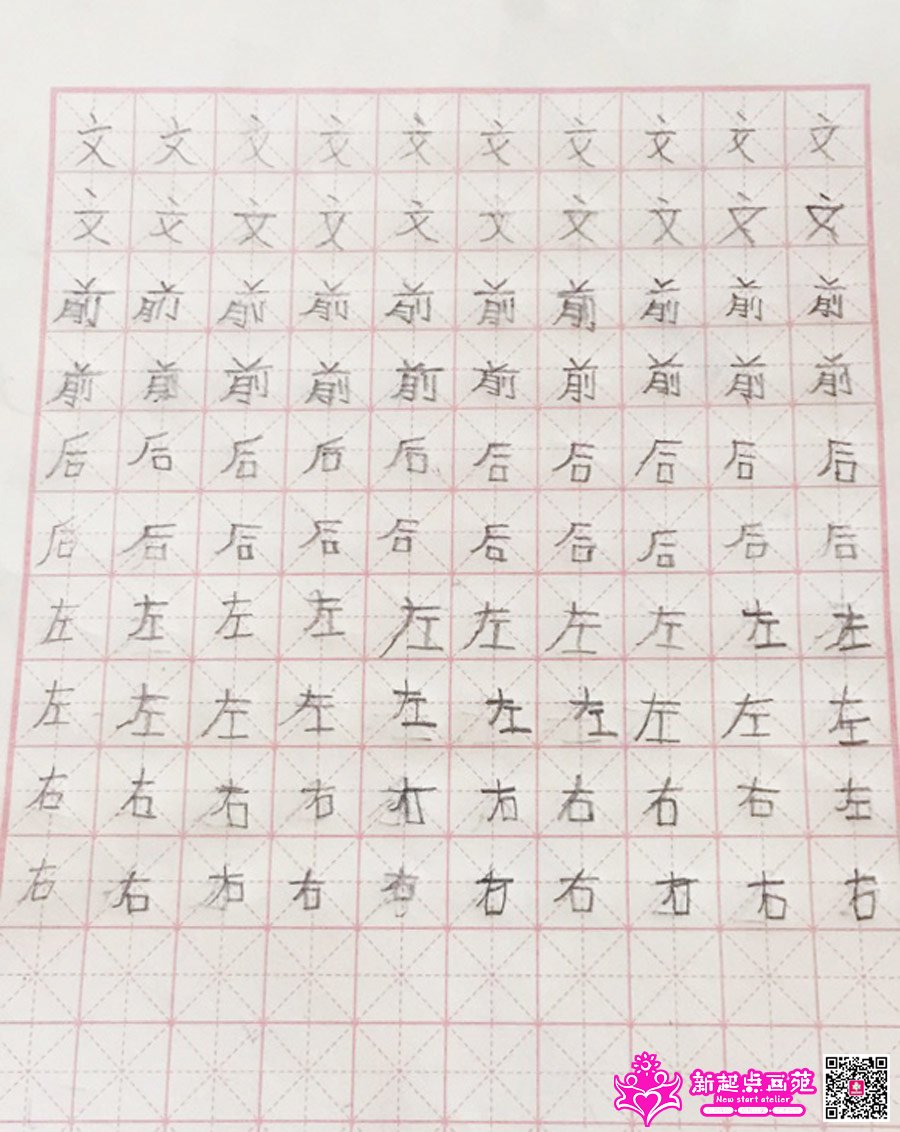 文文文文文文文文文文
文文文文文文文文文文
前前前前前前前前前前
前前前前前前前前前前
后后后后后后后后后后
后后后后后后后后后后
左左左左左左左左左左
左左左左左左左左左左
右右右右右右右右右右
右右右右右右右右右右
新起点画苑
New start atelier